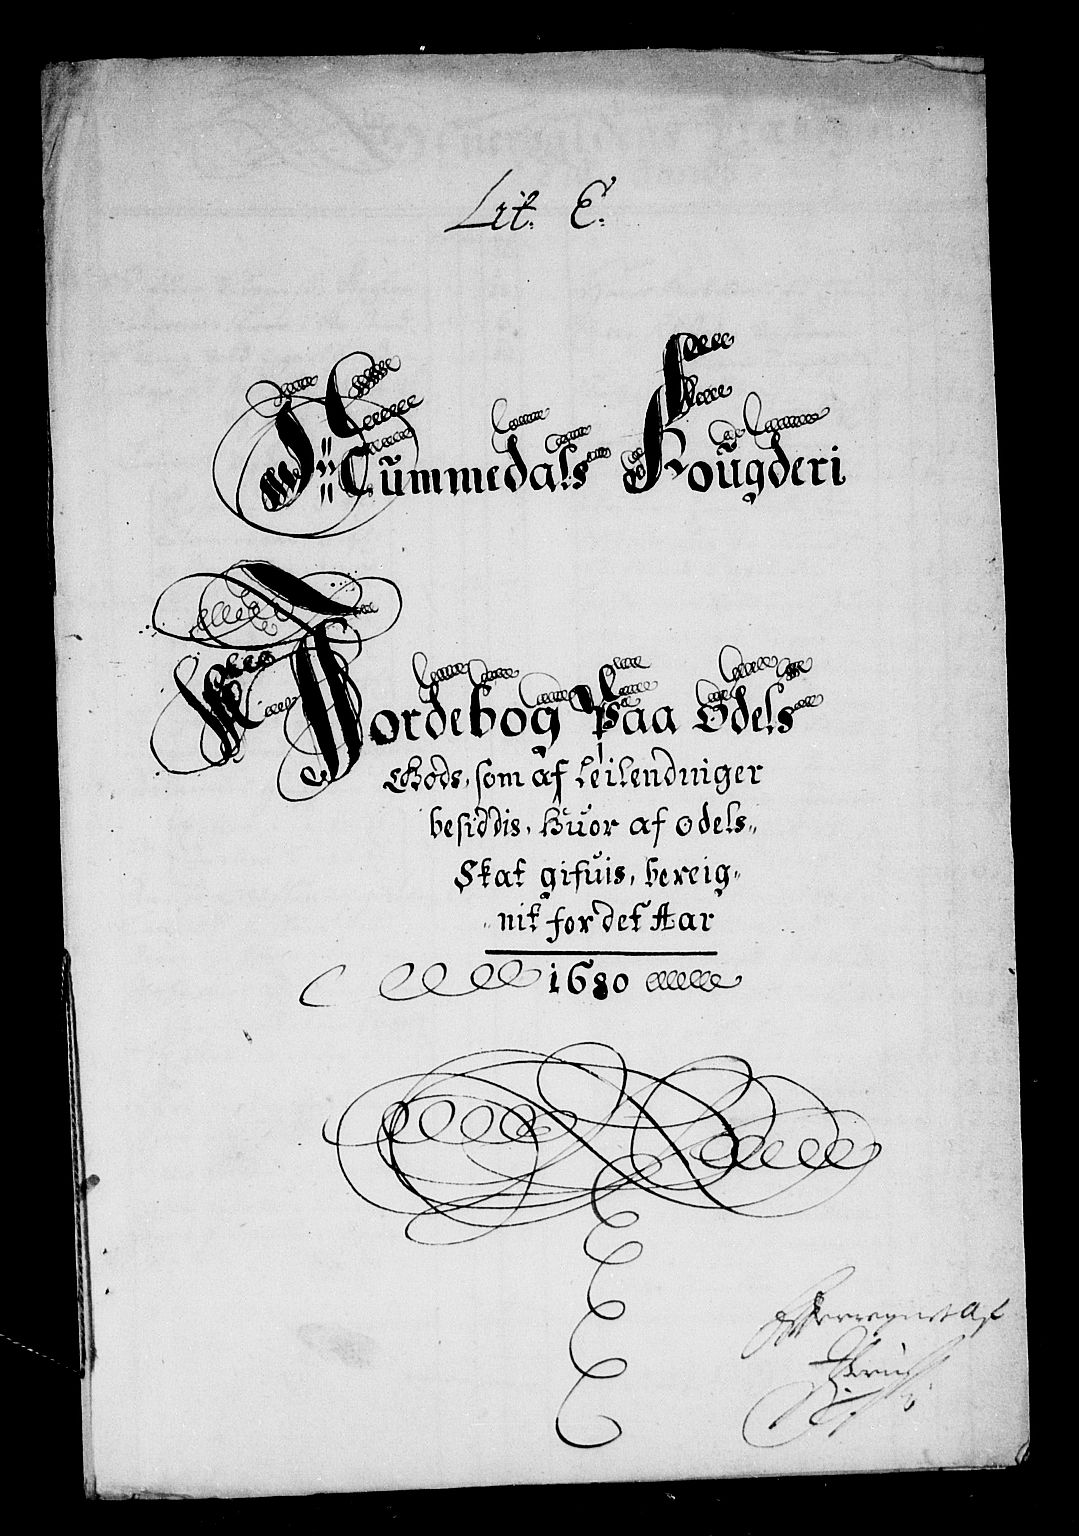 Lit. E.
Nummedals Fougderi
Jordebog paa Odels
Gods, som af leilendniger
besiddis, Huor af odels-
Skat gifuis, bereig-
nit for det Aar
1680